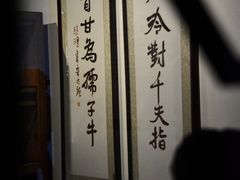 冷對千夫指
首甘為孺子牛